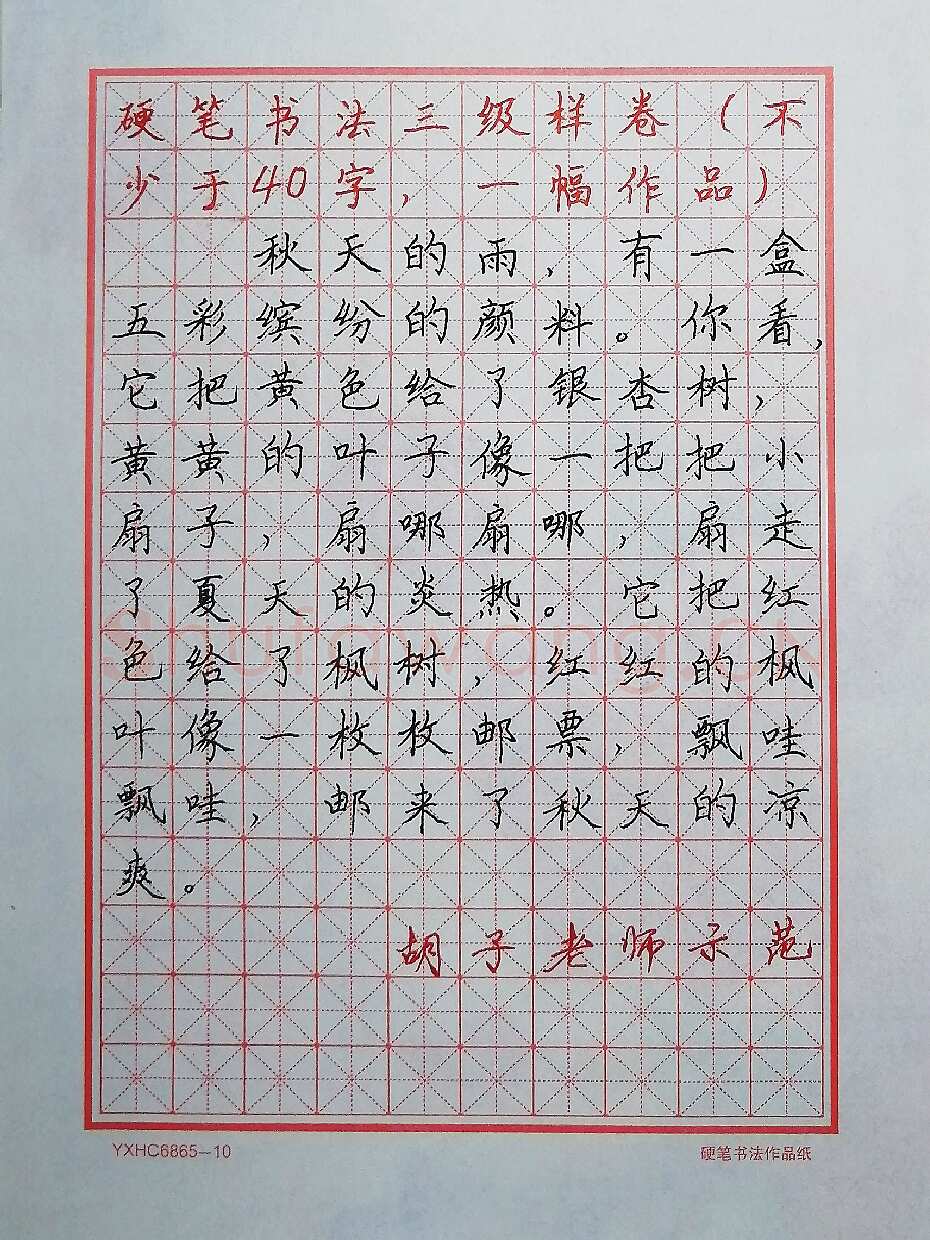 硬笔书法三级样卷（不
少于40字，一幅作品）
秋天的雨，有一盒
五彩缤纷的颜料。你看，
它把黄色给了银杏树，
黄黄的叶子像一把把小
扇子，扇哪扇哪，扇走
了夏天的炎热。它把红
色给了枫树，红红的枫
叶像一枚枚邮票，飘哇
飘哇，邮来了秋天的凉
爽。
胡子老师示范
YXHC6865—10
硬笔书法作品纸